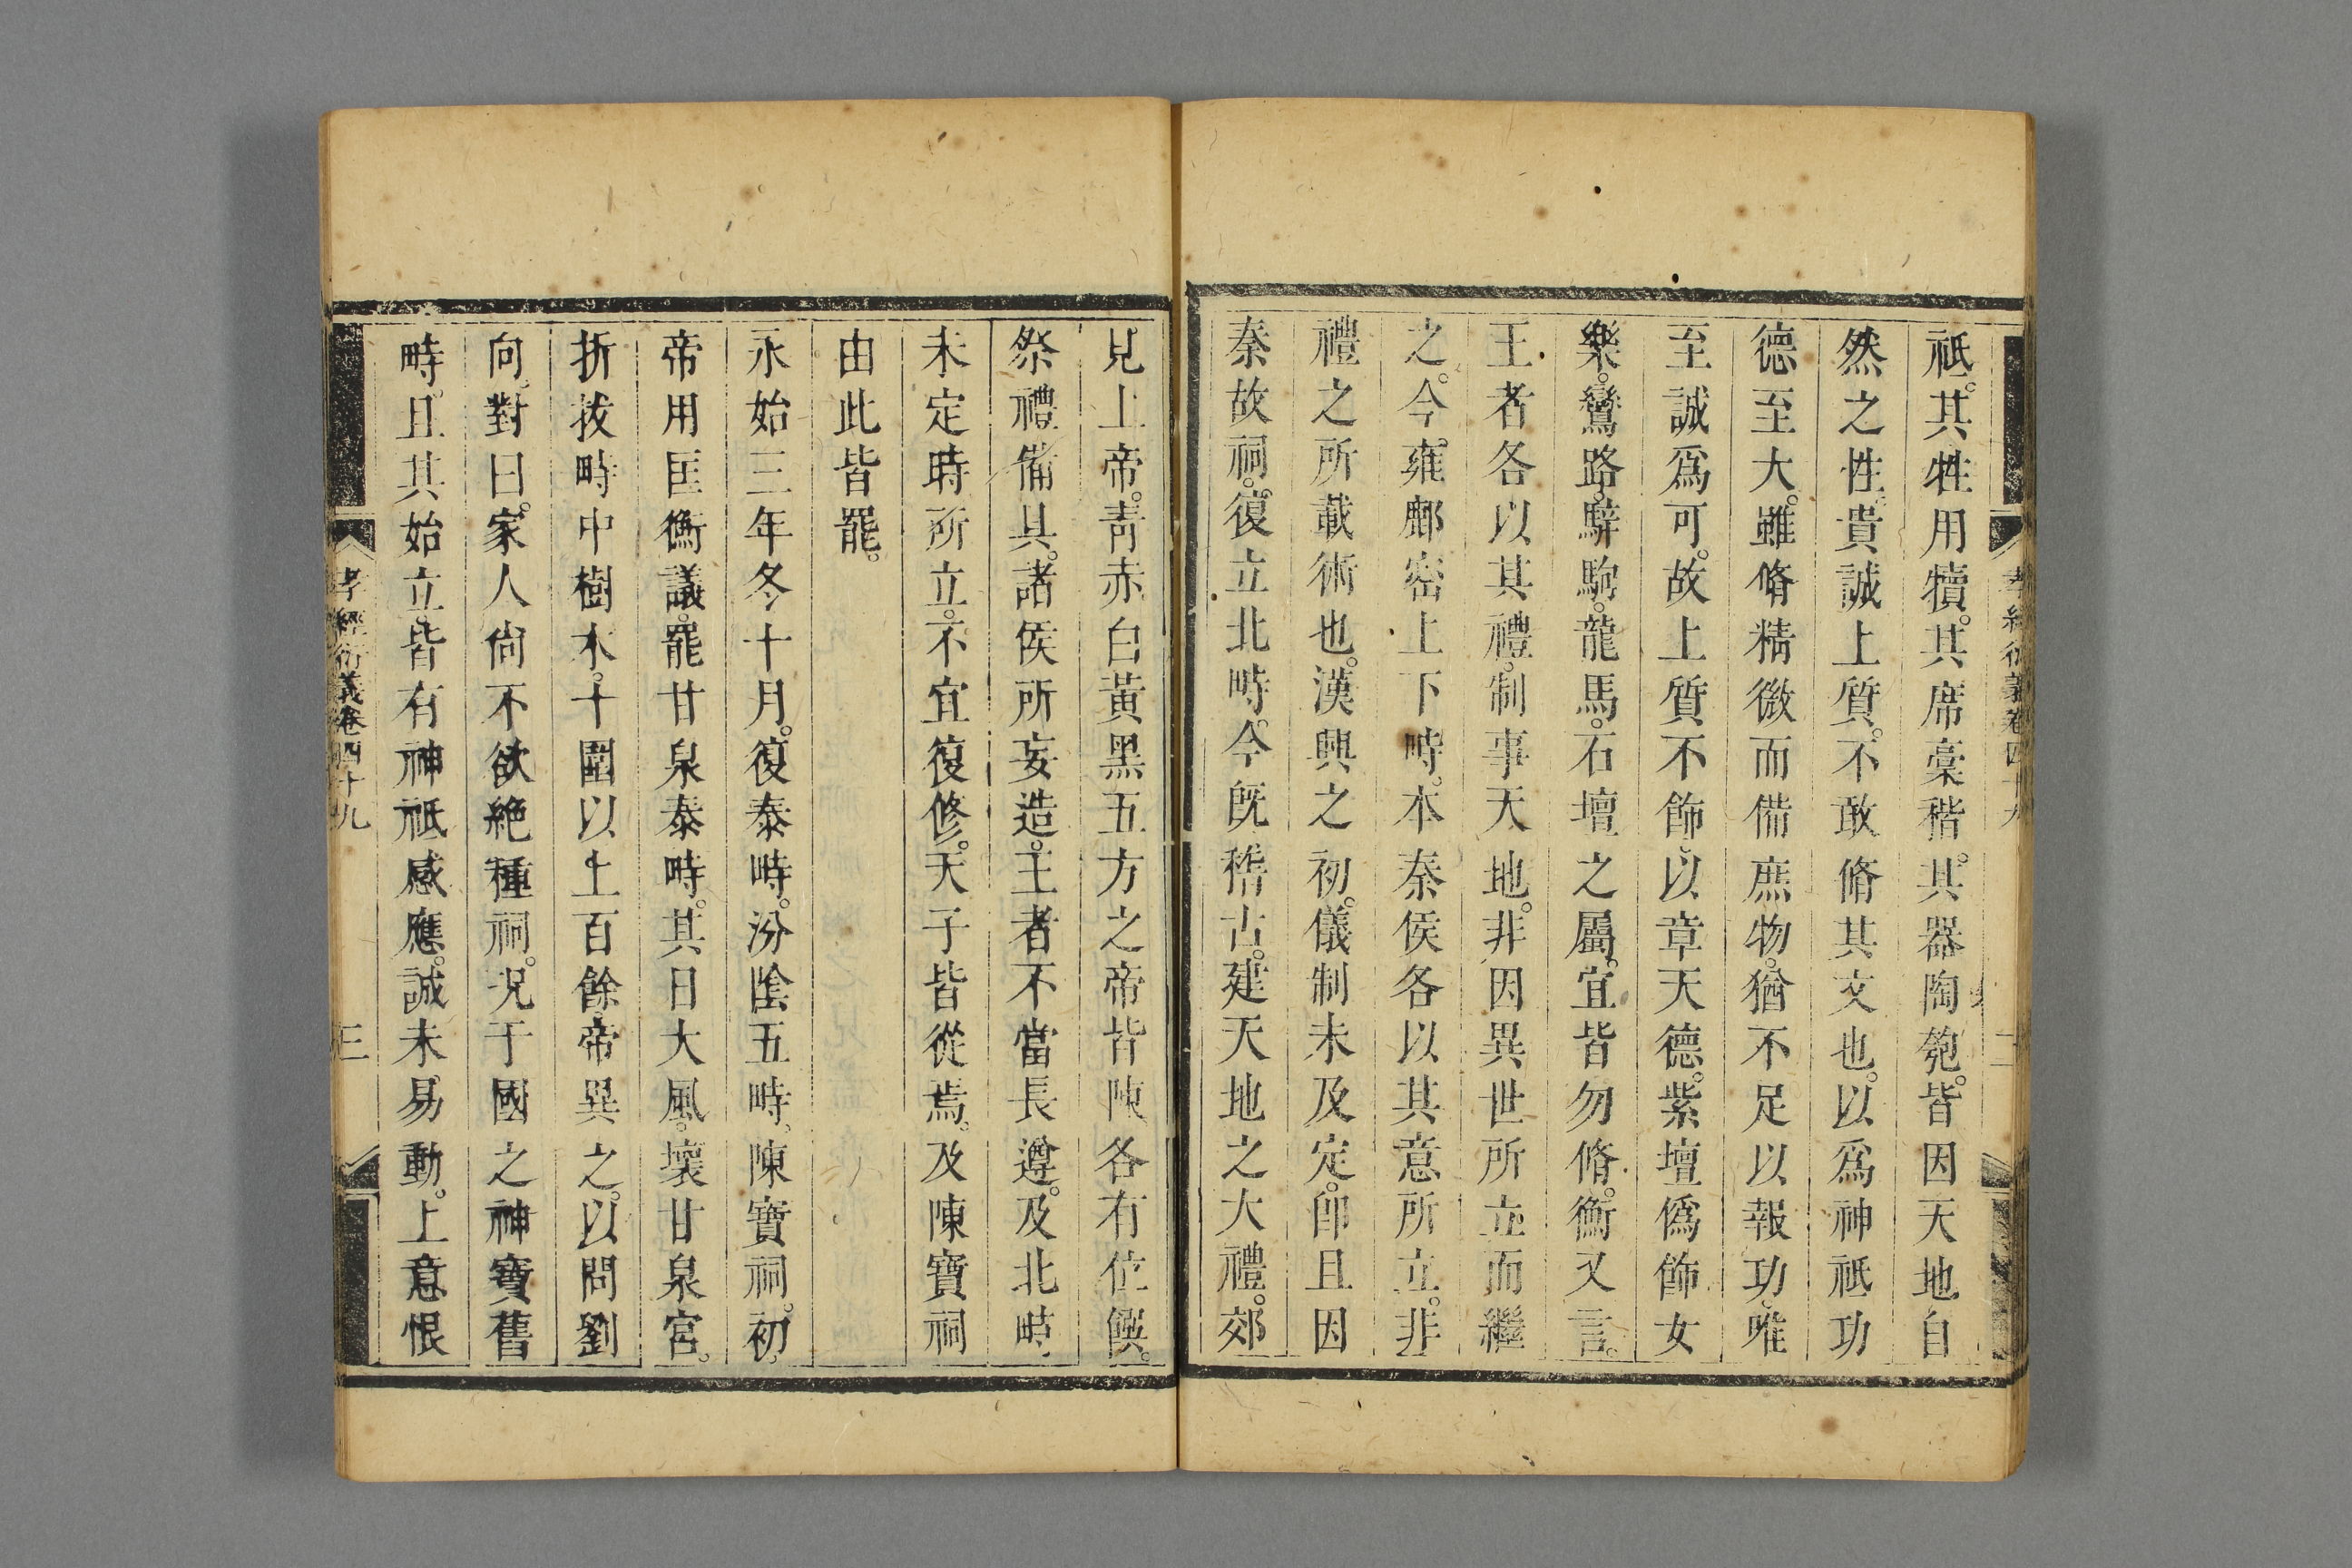 祗。其牲用犢。其席稾稭。其器陶匏。皆因天地自
然之性。貴誠上質。不敢脩其文也。以爲神祗功
德至大。雖脩精微而備庶物。猶不足以報功。唯
至誠爲可。故上質不飾。以章天德。紫壇僞飾女
樂。鸞路。騂駒。龍馬。石壇之屬。宜皆勿脩。衡又言。
王者各以其禮。制事天地。非因異世所立而繼
之。今雍鄜密上下畤。本秦侯各以其意所立。非
禮之所載術也。漢興之初。儀制未及定。卽且因
秦故祠。復立北畤。今旣稽古。建天地之大禮。郊
見上帝。靑赤白黃黑五方之帝皆陳各有位饌。
祭禮備具。諸侯所妄造。王者不當長遵。及北畤
未定時所立。不宜復修。天子皆從焉。及陳寶祠
由此皆罷。
永始三年冬十月。復泰畤。汾陰五畤。陳寶祠。初。
帝用匡衡議。罷甘泉泰畤。其日大風。壞甘泉宮。
折拔畤中樹木。十圍以上百餘。帝異之。以問劉
向。對曰。家人尙不欲絶種祠。况于國之神寶舊
畤。且其始立。皆有神祗感應。誠未易動。上意恨
孝經衍義卷四十九
三